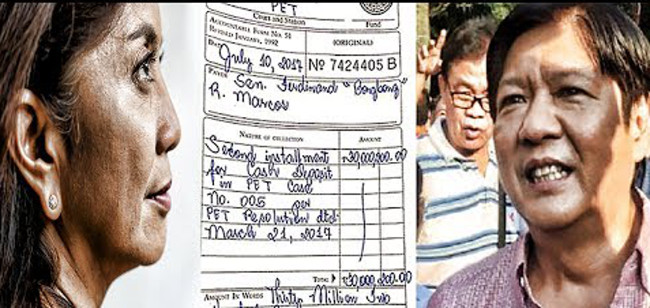 PET
Cities and Station
Fund
ACCOUNTABLE FORM NO. 51
REVISED JANUARY, 1992
(ORIGINAL)
DATE July 10, 2017
No 7424405 B
PAYOR Sen. Ferdinand "Bongbong"
R. Marcos
NATURE OF COLLECTION
AMOUNT
Second installment
for Cash Deposit
in PET Case
No. 005 per
PET Resolution dtd.
March 21, 2017
TOTAL
AMOUNT IN WORDS Thirty Million Two